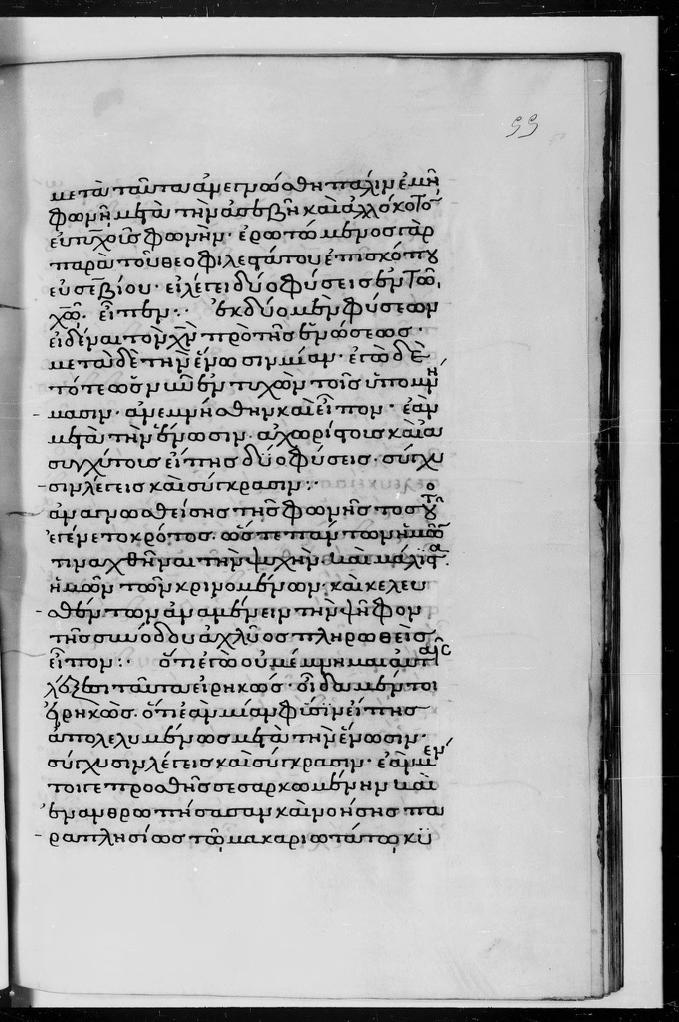 99
μετὰ ταῦτα ἀνεγνώσθη πάλιν ἐμὴ
φωνὴ μετὰ τὴν ἀσεβῆ καὶ ἀλλόκοτον
εὐτυχοῦς φωνήν· ἐρωτώμενος γὰρ
παρὰ τοῦ θεοφιλεστάτου ἐπισκόπου
εὐσεβίου· εἰ λέγει δύο φύσεις ἐν τῶ
χῶ. εἶπεν:· ἐκ δύο μὲν φύσεων
εἰδέναι τὸν χν πρὸ τῆς ἑνώσεως·
μετὰ δὲ τὴν ἕνωσιν μίαν· ἐγὼ δὲ
τότε ὡς νῦν ἐντυχὼν τοῖς ὑπομνή
μασιν· ἀνεμνήσθην καὶ εἶπον· ἐὰν
μετὰ τὴν ἕνωσιν· ἀχωρίστους καὶ ἀ
συγχύτους εἴπης δύο φύσεις· σύγχυ
σιν λέγεις καὶ σύγκρασιν:·
ἀναγνωσθείσης τῆς φωνῆς τοσοῦτος
ἐγένετο κρότος· ὥστε πάντων ἡμῶν
τιναχθῆναι τὴν ψυχὴν καὶ μάλιστα
ἡμῶν τῶν κρινομένων· καὶ κελευ
σθὲν τῶν ἀναμένειν τὴν ψῆφον
τῆς συνόδου ἀχλύος πληρωθεὶς
εἶπον:· ὅτι ἐγὼ οὐ μέμνημαι αὐταῖς
λέξεσι ταῦτα εἰρηκώς· οἶδα μέντοι
εἰρηκώς. ὅτι ἐὰν μίαν φύσιν εἴπης
ἀπολελυμένως μετὰ τὴν ἕνωσιν·
σύγχυσιν λέγεις καὶ σύγκρασιν· ἐὰν μέν
τοιγε προσθῆς σεσαρκωμένην καὶ
ἐνανθρωπήσασαν καὶ νοήσης πα
ραπλησίως τῶ μακαριωτάτω κϋ